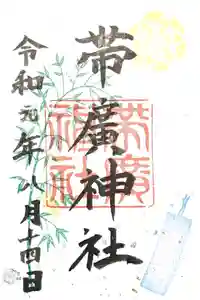 帯廣神社
令和元年八月十四日
帯廣
神社